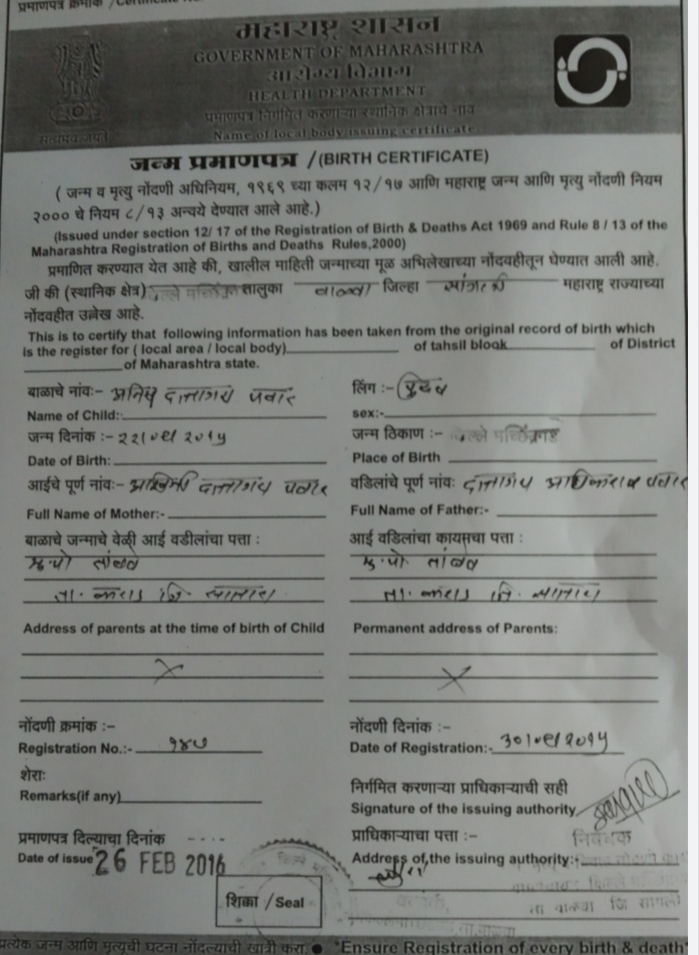 प्रमाणपत्र क्रमांक /Certificate No.
महाराष्ट्र शासन
GOVERNMENT OF MAHARASHTRA
आरोग्य विभाग
HEALTH DEPARTMENT
प्रमाणपत्र निर्गमित करणाऱ्या स्थानिक क्षेत्राचे नाव
Name of local body issuing certificate
सत्यमेव जयते
जन्म प्रमाणपत्र /(BIRTH CERTIFICATE)
( जन्म व मृत्यु नोंदणी अधिनियम, १९६९ च्या कलम १२/१७ आणि महाराष्ट्र जन्म आणि मृत्यु नोंदणी नियम
२००० चे नियम ८/१३ अन्वये देण्यात आले आहे.)
(Issued under section 12/ 17 of the Registration of Birth & Deaths Act 1969 and Rule 8 / 13 of the
Maharashtra Registration of Births and Deaths Rules,2000)
प्रमाणित करण्यात येत आहे की, खालील माहिती जन्माच्या मूळ अभिलेखाच्या नोंदवहीतून घेण्यात आली आहे.
जी की (स्थानिक क्षेत्र) तालुका वाळवा जिल्हा सांगली महाराष्ट्र राज्याच्या
नोंदवहीत उल्लेख आहे.
This is to certify that following information has been taken from the original record of birth which
is the register for ( local area / local body) of tahsil block of District
of Maharashtra state.
बाळाचे नांवः- दत्तात्रय पवार
लिंग :- पुरुष
Name of Child:-
sex:-
जन्म दिनांक :- २२।०९।२०१५
जन्म ठिकाण :-
Date of Birth:
Place of Birth
आईचे पूर्ण नांवः- दत्तात्रय पवार
वडिलांचे पूर्ण नांवः दत्तात्रय अधिकराव पवार
Full Name of Mother:-
Full Name of Father:-
बाळाचे जन्माचे वेळी आई वडीलांचा पत्ता :
आई वडिलांचा कायमचा पत्ता :
मु.पो तांबवे
मु.पो. तांबवे
ता. कराड जि. सातारा
ता. कराड जि. सातारा
Address of parents at the time of birth of Child
Permanent address of Parents:
नोंदणी क्रमांक :-
नोंदणी दिनांक :-
Registration No.:- १४७
Date of Registration:- ३०।०९।२०१५
शेराः
निर्गमित करणाऱ्या प्राधिकाऱ्याची सही
Remarks(if any)
Signature of the issuing authority
प्रमाणपत्र दिल्याचा दिनांक
प्राधिकाऱ्याचा पत्ता :-
निबंधक
Date of issue 26 FEB 2016
Address of the issuing authority:-
शिक्का /Seal
प्रत्येक जन्म आणि मृत्यूची घटना नोंदल्याची खात्री करा. ● "Ensure Registration of every birth & death"